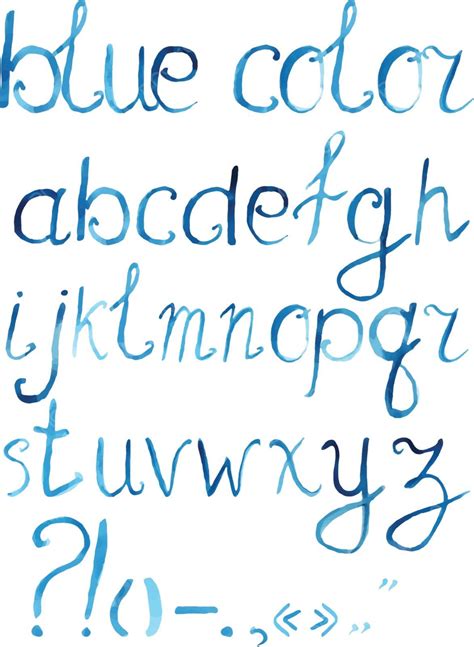 blue color
abcdefgh
ijklmnopqr
stuvwxyz
?!()-.,«»„”